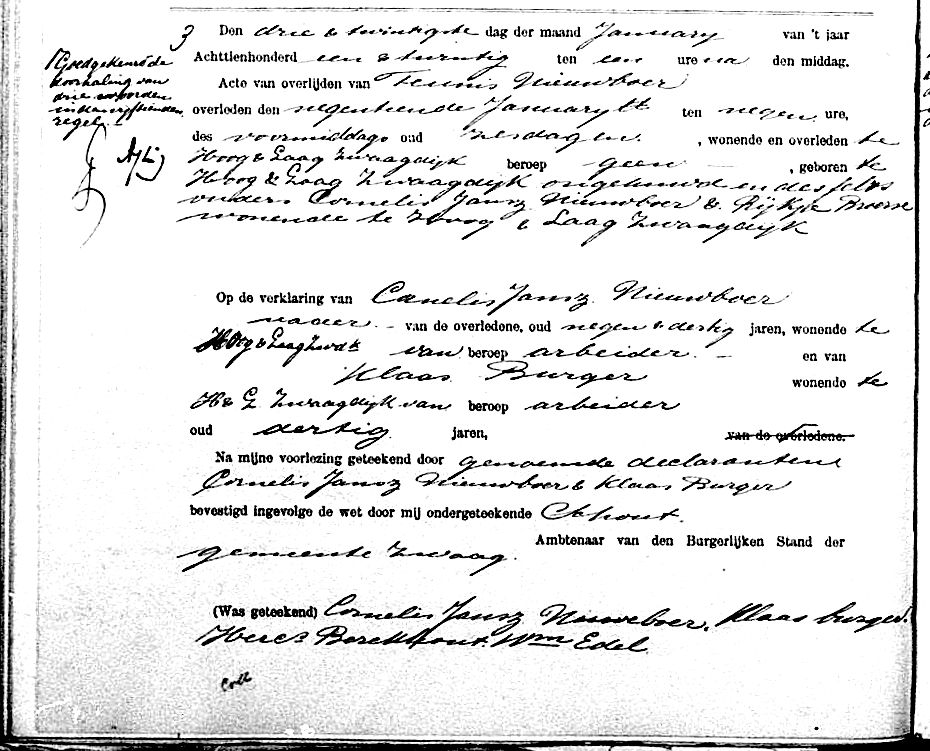 3
Den drie & twintigste dag der maand January van 't jaar
Achttienhonderd een & twintig ten een ure na den middag.
Acte van overlijden van Teunis Nieuwboer
overleden den negentiende January ten negen ure,
des voormiddags oud zes dagen , wonende en overleden te
Hoog & Laag Zwaagdijk beroep geen – , geboren te
Hoog & Laag Zwaagdijk ongehuwd en desselvs
ouders Cornelis Jansz Nieuwboer & Rijkje Broerse
wonende te Hoog & Laag Zwaagdijk
Goedgekeurd de
doorhaling van
drie woorden
in den vijftienden
regel.
Op de verklaring van Cornelis Jansz Nieuwboer
vader – van de overledene, oud negen & dertig jaren, wonende te
Hoog & Laag Zwdk van beroep arbeider. – en van
Klaas Burger wonende te
H & L Zwaagdijk van beroep arbeider
oud dertig jaren, van de overledene.
Na mijne voorlezing geteekend door genoemde declaranten
Cornelis Jansz Nieuwboer & Klaas Burger
bevestigd ingevolge de wet door mij ondergeteekende Schout.
Ambtenaar van den Burgerlijken Stand der
gemeente Zwaag.
(Was geteekend) Cornelis Jansz Nieuweboer, Klaas burger.
Herc.s Berckhout. Wm Edel.
Coll